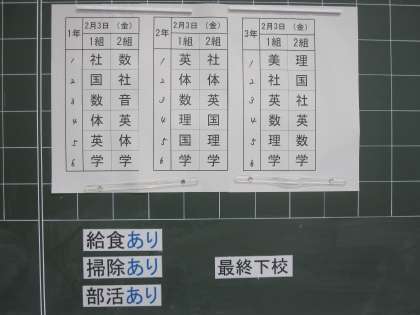 1年 2月3日 (金)
1組 2組
1 社 数
2 国 社
3 数 音
4 体 英
5 英 体
6 学 学
2年 2月3日 (金)
1組 2組
1 英 社
2 体 体
3 英 数
4 理 国
5 国 理
6 学 学
3年 2月3日 (金)
1組 2組
1 美 理
2 社 国
3 英 社
4 数 英
5 理 数
6 学 学
給食あり
掃除あり
最終下校
部活あり